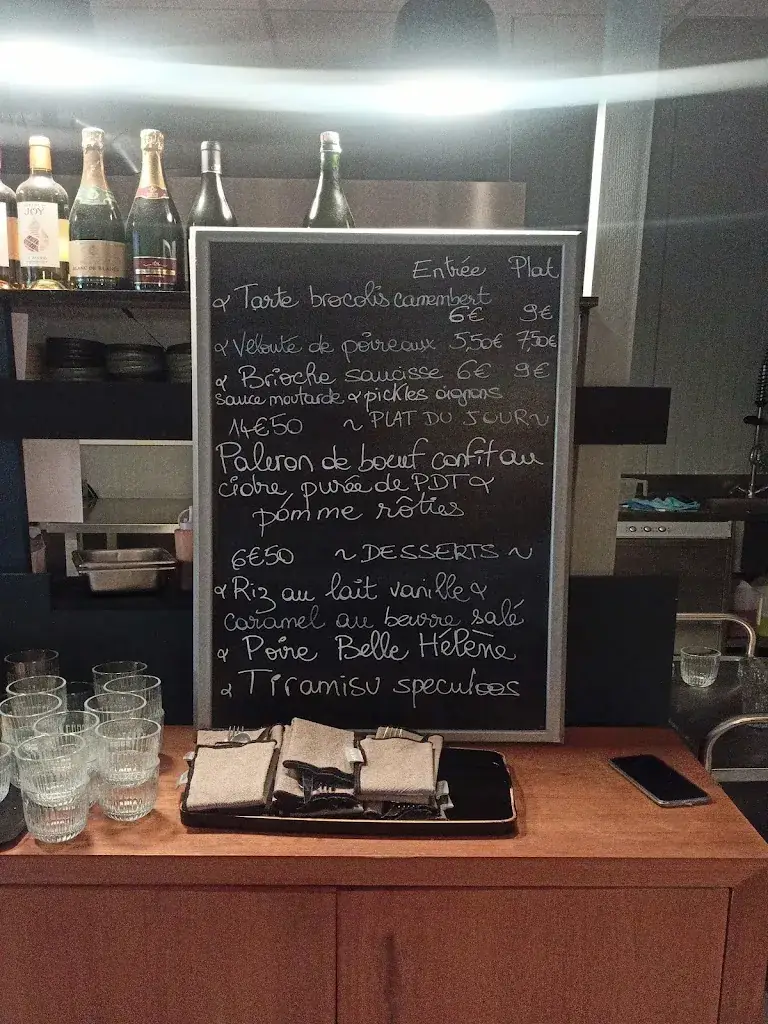 JOY
BLANC DE BLANCS
Entrée Plat
Tarte brocolis camembert
6€ 9€
Velouté de poireaux 5,50€ 7,50€
Brioche saucisse 6€ 9€
sauce moutarde & pickles oignons
14€50 ~ PLAT DU JOUR ~
Paleron de boeuf confit au
cidre, purée de PDT &
pomme rôties
6€50 ~ DESSERTS ~
Riz au lait vanille &
caramel au beurre salé
Poire Belle Hélène
Tiramisu speculoos